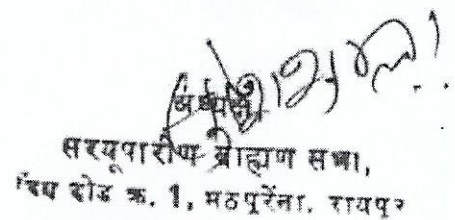 अध्यक्ष,
सरयूपारीण ब्राह्मण सभा,
रोड क्र. 1, मठपुरैना, रायपुर